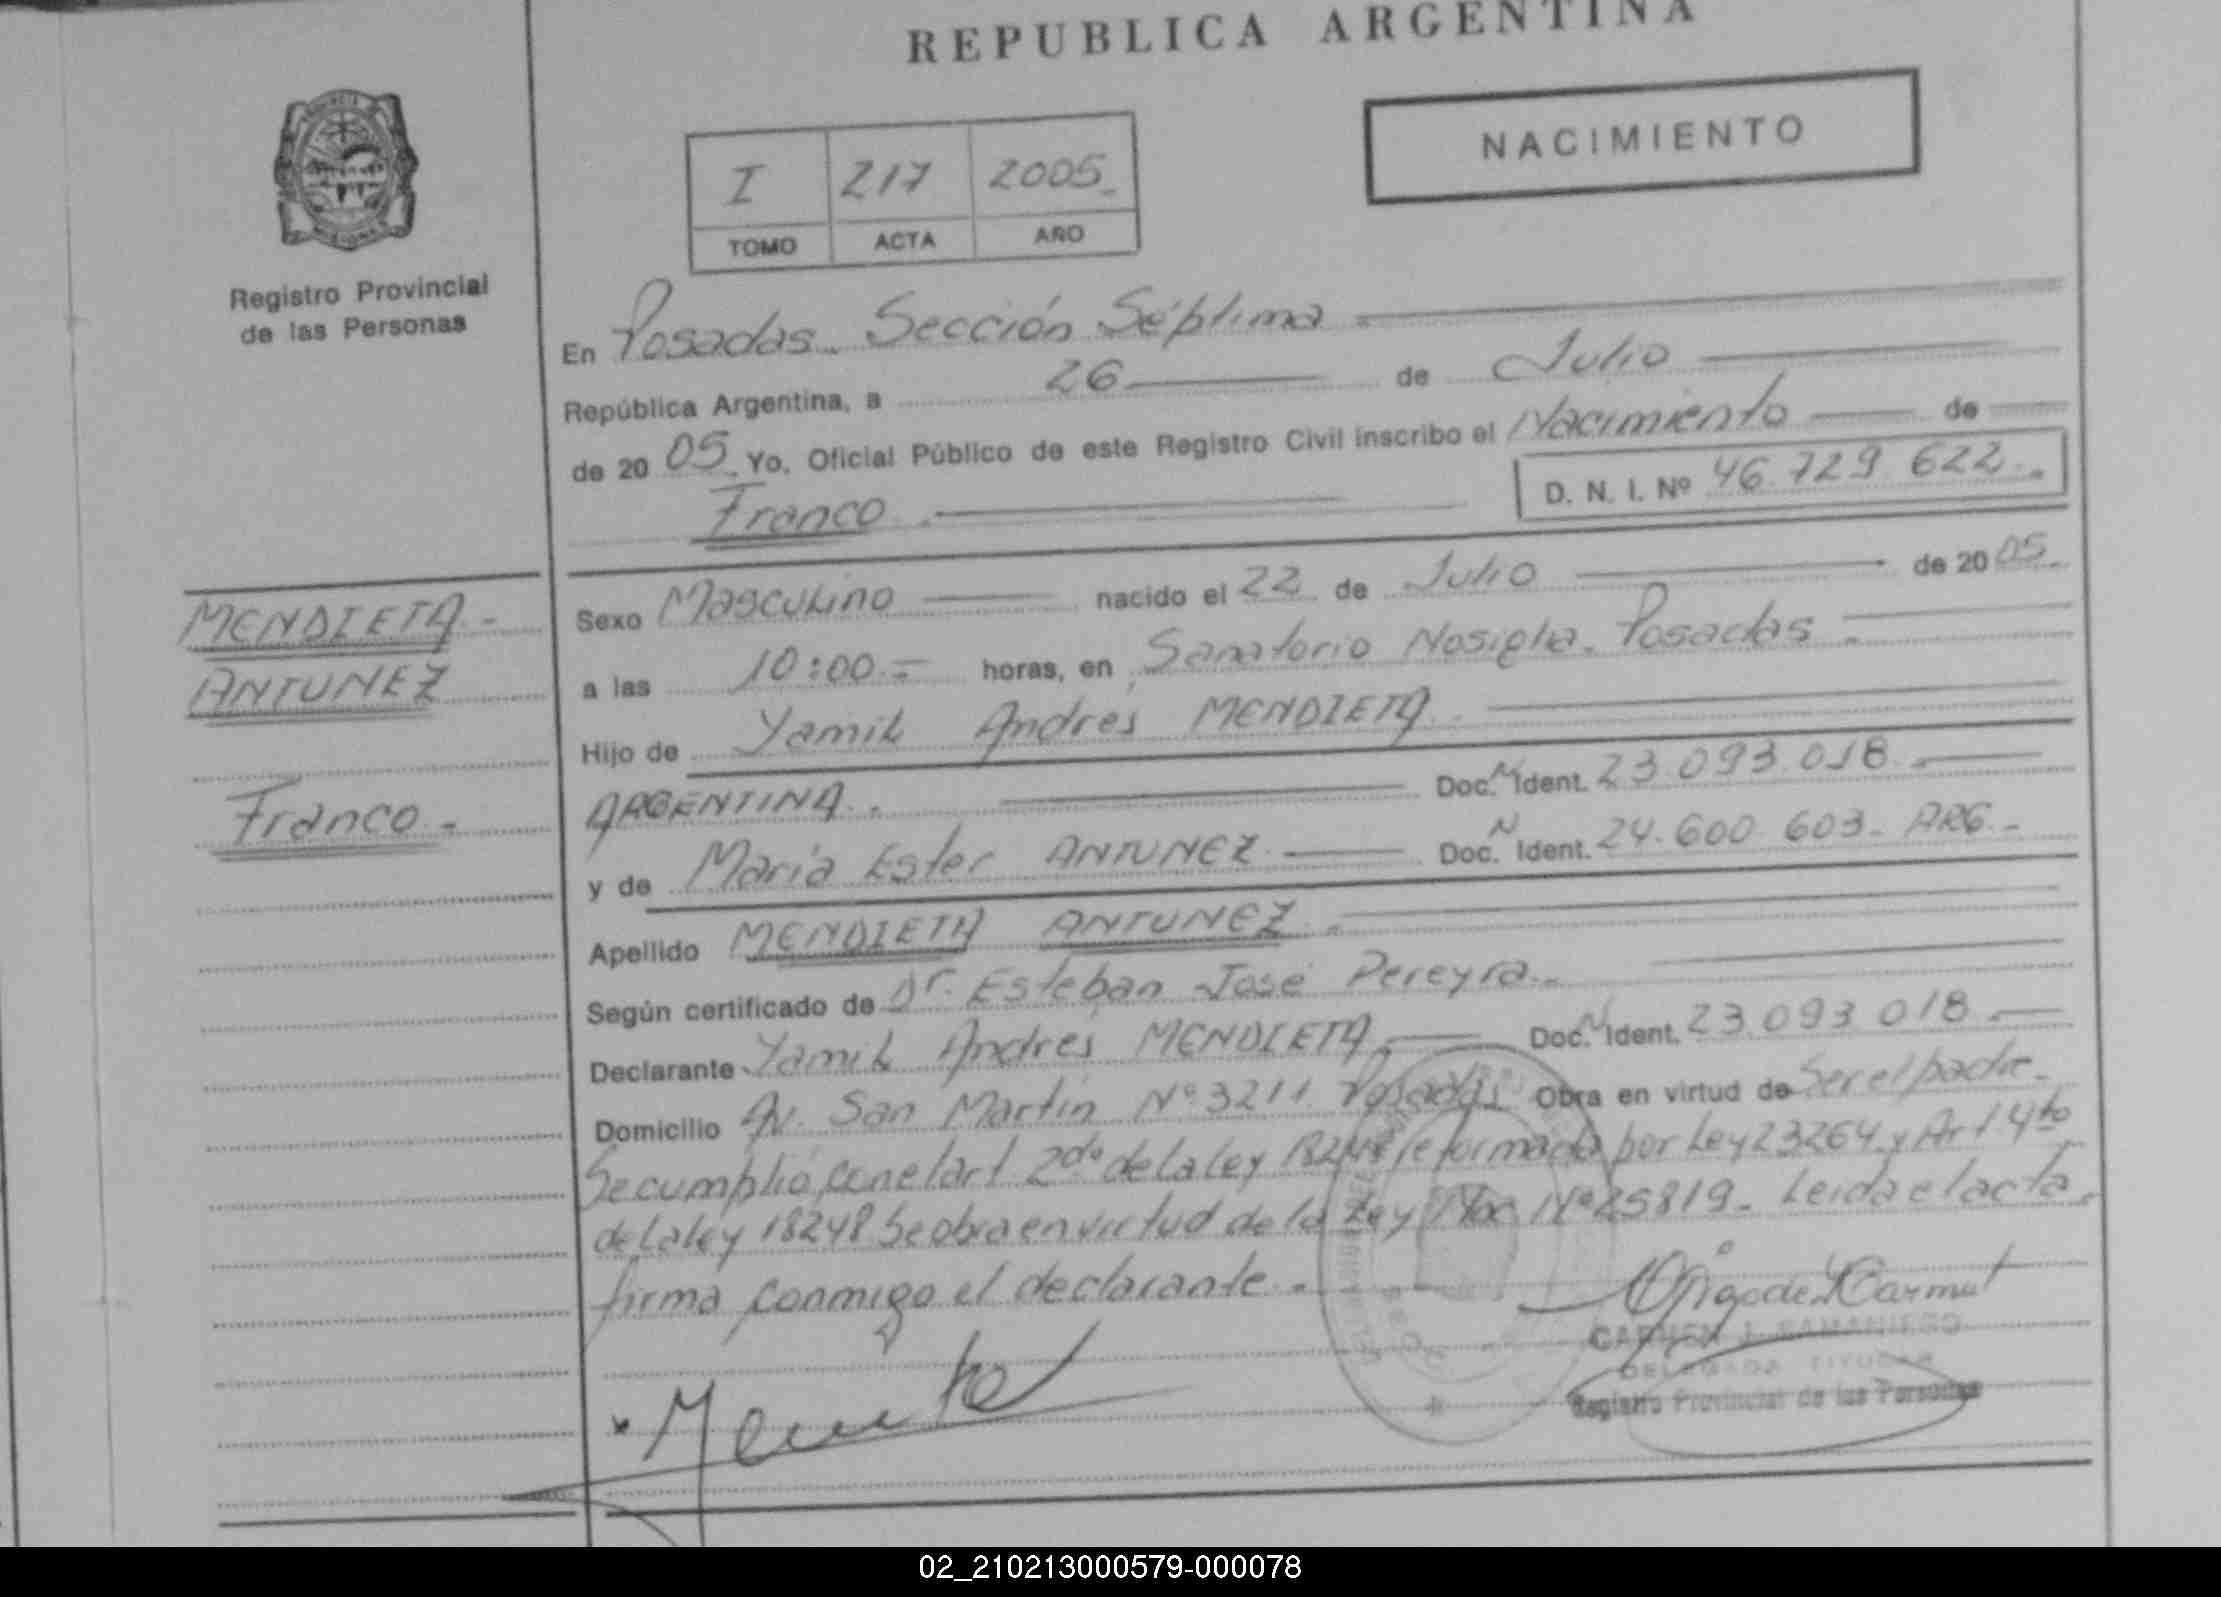 REPUBLICA ARGENTINA
NACIMIENTO
I 217 2005
TOMO ACTA AÑO
Registro Provincial
de las Personas
En Posadas. Sección Séptima
República Argentina, a 26 de Julio
de 20 05 Yo, Oficial Público de este Registro Civil inscribo el Nacimiento de
Franco
D. N. I. Nº 46.729.622.-
MENDIETA.-
ANTUNEZ
Franco.-
Sexo Masculino nacido el 22 de Julio de 20 05.
a las 10:00.= horas, en Sanatorio Nosigla. Posadas.
Hijo de Yamil Andres MENDIETA.
ARGENTINA. Doc. N Ident. 23.093.018.
y de Maria Ester ANTUNEZ Doc. N Ident. 24.600.603.- ARG.-
Apellido MENDIETA ANTUNEZ.
Según certificado de Dr. Esteban José Pereyra.-
Declarante Yamil Andres MENDIETA Doc. N Ident. 23.093.018.
Domicilio Av. San Martín Nº 3211 Posadas Obra en virtud de Ser el padre.
Se cumplió con el art 2do de la ley 18248 reformada por Ley 23264 y Art 4to
de la ley 18248 Se obra en virtud de la Ley Nac Nº 25819.- Leida el acta
firma conmigo el declarante.-
CARMEN J. SAMANIEGO
DELEGADA TITULAR
Registro Provincial de las Personas
02_210213000579-000078